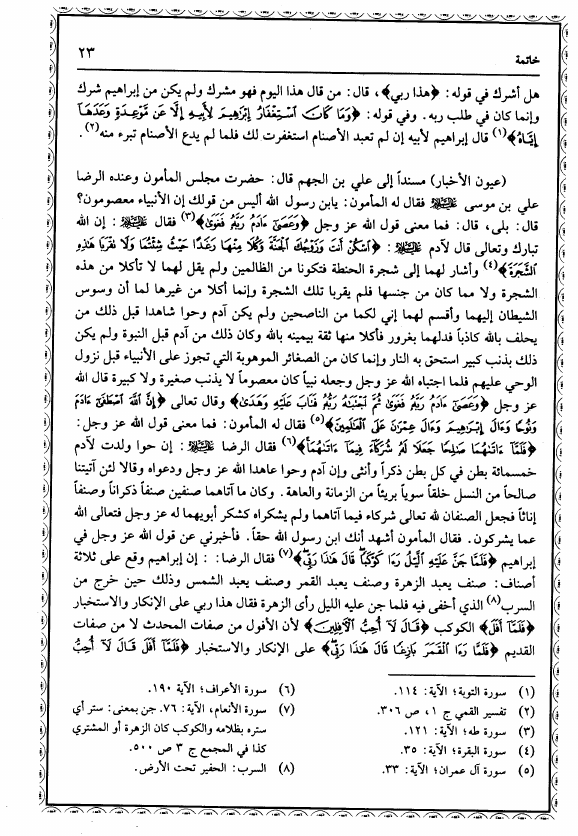 خاتمة ٢٣
هل أشرك في قوله: ﴿هذا ربي﴾، قال: من قال هذا اليوم فهو مشرك ولم يكن من إبراهيم شرك
وإنما كان في طلب ربه. وفي قوله: ﴿وَمَا كَانَ ٱسْتِغْفَارُ إِبْرَٰهِيمَ لِأَبِيهِ إِلَّا عَن مَّوْعِدَةٍ وَعَدَهَآ
إِيَّاهُ﴾(١) قال إبراهيم لأبيه إن لم تعبد الأصنام استغفرت لك فلما لم يدع الأصنام تبرء منه(٢).
(عيون الأخبار) مسنداً إلى علي بن الجهم قال: حضرت مجلس المأمون وعنده الرضا
علي بن موسى عليه السلام فقال له المأمون: يابن رسول الله أليس من قولك إن الأنبياء معصومون؟
قال: بلى، قال: فما معنى قول الله عز وجل ﴿وَعَصَىٰٓ ءَادَمُ رَبَّهُۥ فَغَوَىٰ﴾(٣) فقال عليه السلام: إن الله
تبارك وتعالى قال لآدم عليه السلام: ﴿ٱسْكُنْ أَنتَ وَزَوْجُكَ ٱلْجَنَّةَ وَكُلَا مِنْهَا رَغَدًا حَيْثُ شِئْتُمَا وَلَا تَقْرَبَا هَٰذِهِ
ٱلشَّجَرَةَ﴾(٤) وأشار لهما إلى شجرة الحنطة فتكونا من الظالمين ولم يقل لهما لا تأكلا من هذه
الشجرة ولا مما كان من جنسها فلم يقربا تلك الشجرة وإنما أكلا من غيرها لما أن وسوس
الشيطان إليهما وأقسم لهما إني لكما من الناصحين ولم يكن آدم وحوا شاهدا قبل ذلك من
يحلف بالله كاذباً فدلهما بغرور فأكلا منها ثقة بيمينه بالله وكان ذلك من آدم قبل النبوة ولم يكن
ذلك بذنب كبير استحق به النار وإنما كان من الصغائر الموهوبة التي تجوز على الأنبياء قبل نزول
الوحي عليهم فلما اجتباه الله عز وجل وجعله نبياً كان معصوماً لا يذنب صغيرة ولا كبيرة قال الله
عز وجل ﴿وَعَصَىٰٓ ءَادَمُ رَبَّهُۥ فَغَوَىٰ ثُمَّ ٱجْتَبَٰهُ رَبُّهُۥ فَتَابَ عَلَيْهِ وَهَدَىٰ﴾ وقال تعالى ﴿إِنَّ ٱللَّهَ ٱصْطَفَىٰٓ ءَادَمَ
وَنُوحًا وَءَالَ إِبْرَٰهِيمَ وَءَالَ عِمْرَٰنَ عَلَى ٱلْعَٰلَمِينَ﴾(٥) فقال له المأمون: فما معنى قول الله عز وجل:
﴿فَلَمَّآ ءَاتَىٰهُمَا صَٰلِحًا جَعَلَا لَهُۥ شُرَكَآءَ فِيمَآ ءَاتَىٰهُمَا﴾(٦) فقال الرضا عليه السلام: إن حوا ولدت لآدم
خمسمائة بطن في كل بطن ذكراً وأنثى وإن آدم وحوا عاهدا الله عز وجل ودعواه وقالا لئن آتيتنا
صالحاً من النسل خلقاً سوياً بريئاً من الزمانة والعاهة. وكان ما آتاهما صنفين صنفاً ذكراناً وصنفاً
إناثاً فجعل الصنفان لله تعالى شركاء فيما آتاهما ولم يشكراه كشكر أبويهما له عز وجل فتعالى الله
عما يشركون. فقال المأمون أشهد أنك ابن رسول الله حقاً. فأخبرني عن قول الله عز وجل في
إبراهيم ﴿فَلَمَّا جَنَّ عَلَيْهِ ٱلَّيْلُ رَءَا كَوْكَبًا قَالَ هَٰذَا رَبِّى﴾(٧) فقال الرضا: : إن إبراهيم وقع على ثلاثة
أصناف: صنف يعبد الزهرة وصنف يعبد القمر وصنف يعبد الشمس وذلك حين خرج من
السرب(٨) الذي أخفى فيه فلما جن عليه الليل رأى الزهرة فقال هذا ربي على الإنكار والاستخبار
﴿فَلَمَّآ أَفَلَ﴾ الكوكب ﴿قَالَ لَآ أُحِبُّ ٱلْآفِلِينَ﴾ لأن الأفول من صفات المحدث لا من صفات
القديم ﴿فَلَمَّا رَءَا ٱلْقَمَرَ بَازِغًا قَالَ هَٰذَا رَبِّى﴾ على الإنكار والاستخبار ﴿فَلَمَّآ أَفَلَ قَالَ لَآ أُحِبُّ
(١) سورة التوبة؛ الآية: ١١٤.
(٢) تفسير القمي ج ١، ص ٣٠٦.
(٣) سورة طه؛ الآية: ١٢١.
(٤) سورة البقرة؛ الآية: ٣٥.
(٥) سورة آل عمران؛ الآية: ٣٣.
(٦) سورة الأعراف؛ الآية ١٩٠.
(٧) سورة الأنعام، الآية: ٧٦. جن بمعنى: ستر أي
ستره بظلامه والكوكب كان الزهرة أو المشتري
كذا في المجمع ج ٣ ص ٥٠٠.
(٨) السرب: الحفير تحت الأرض.